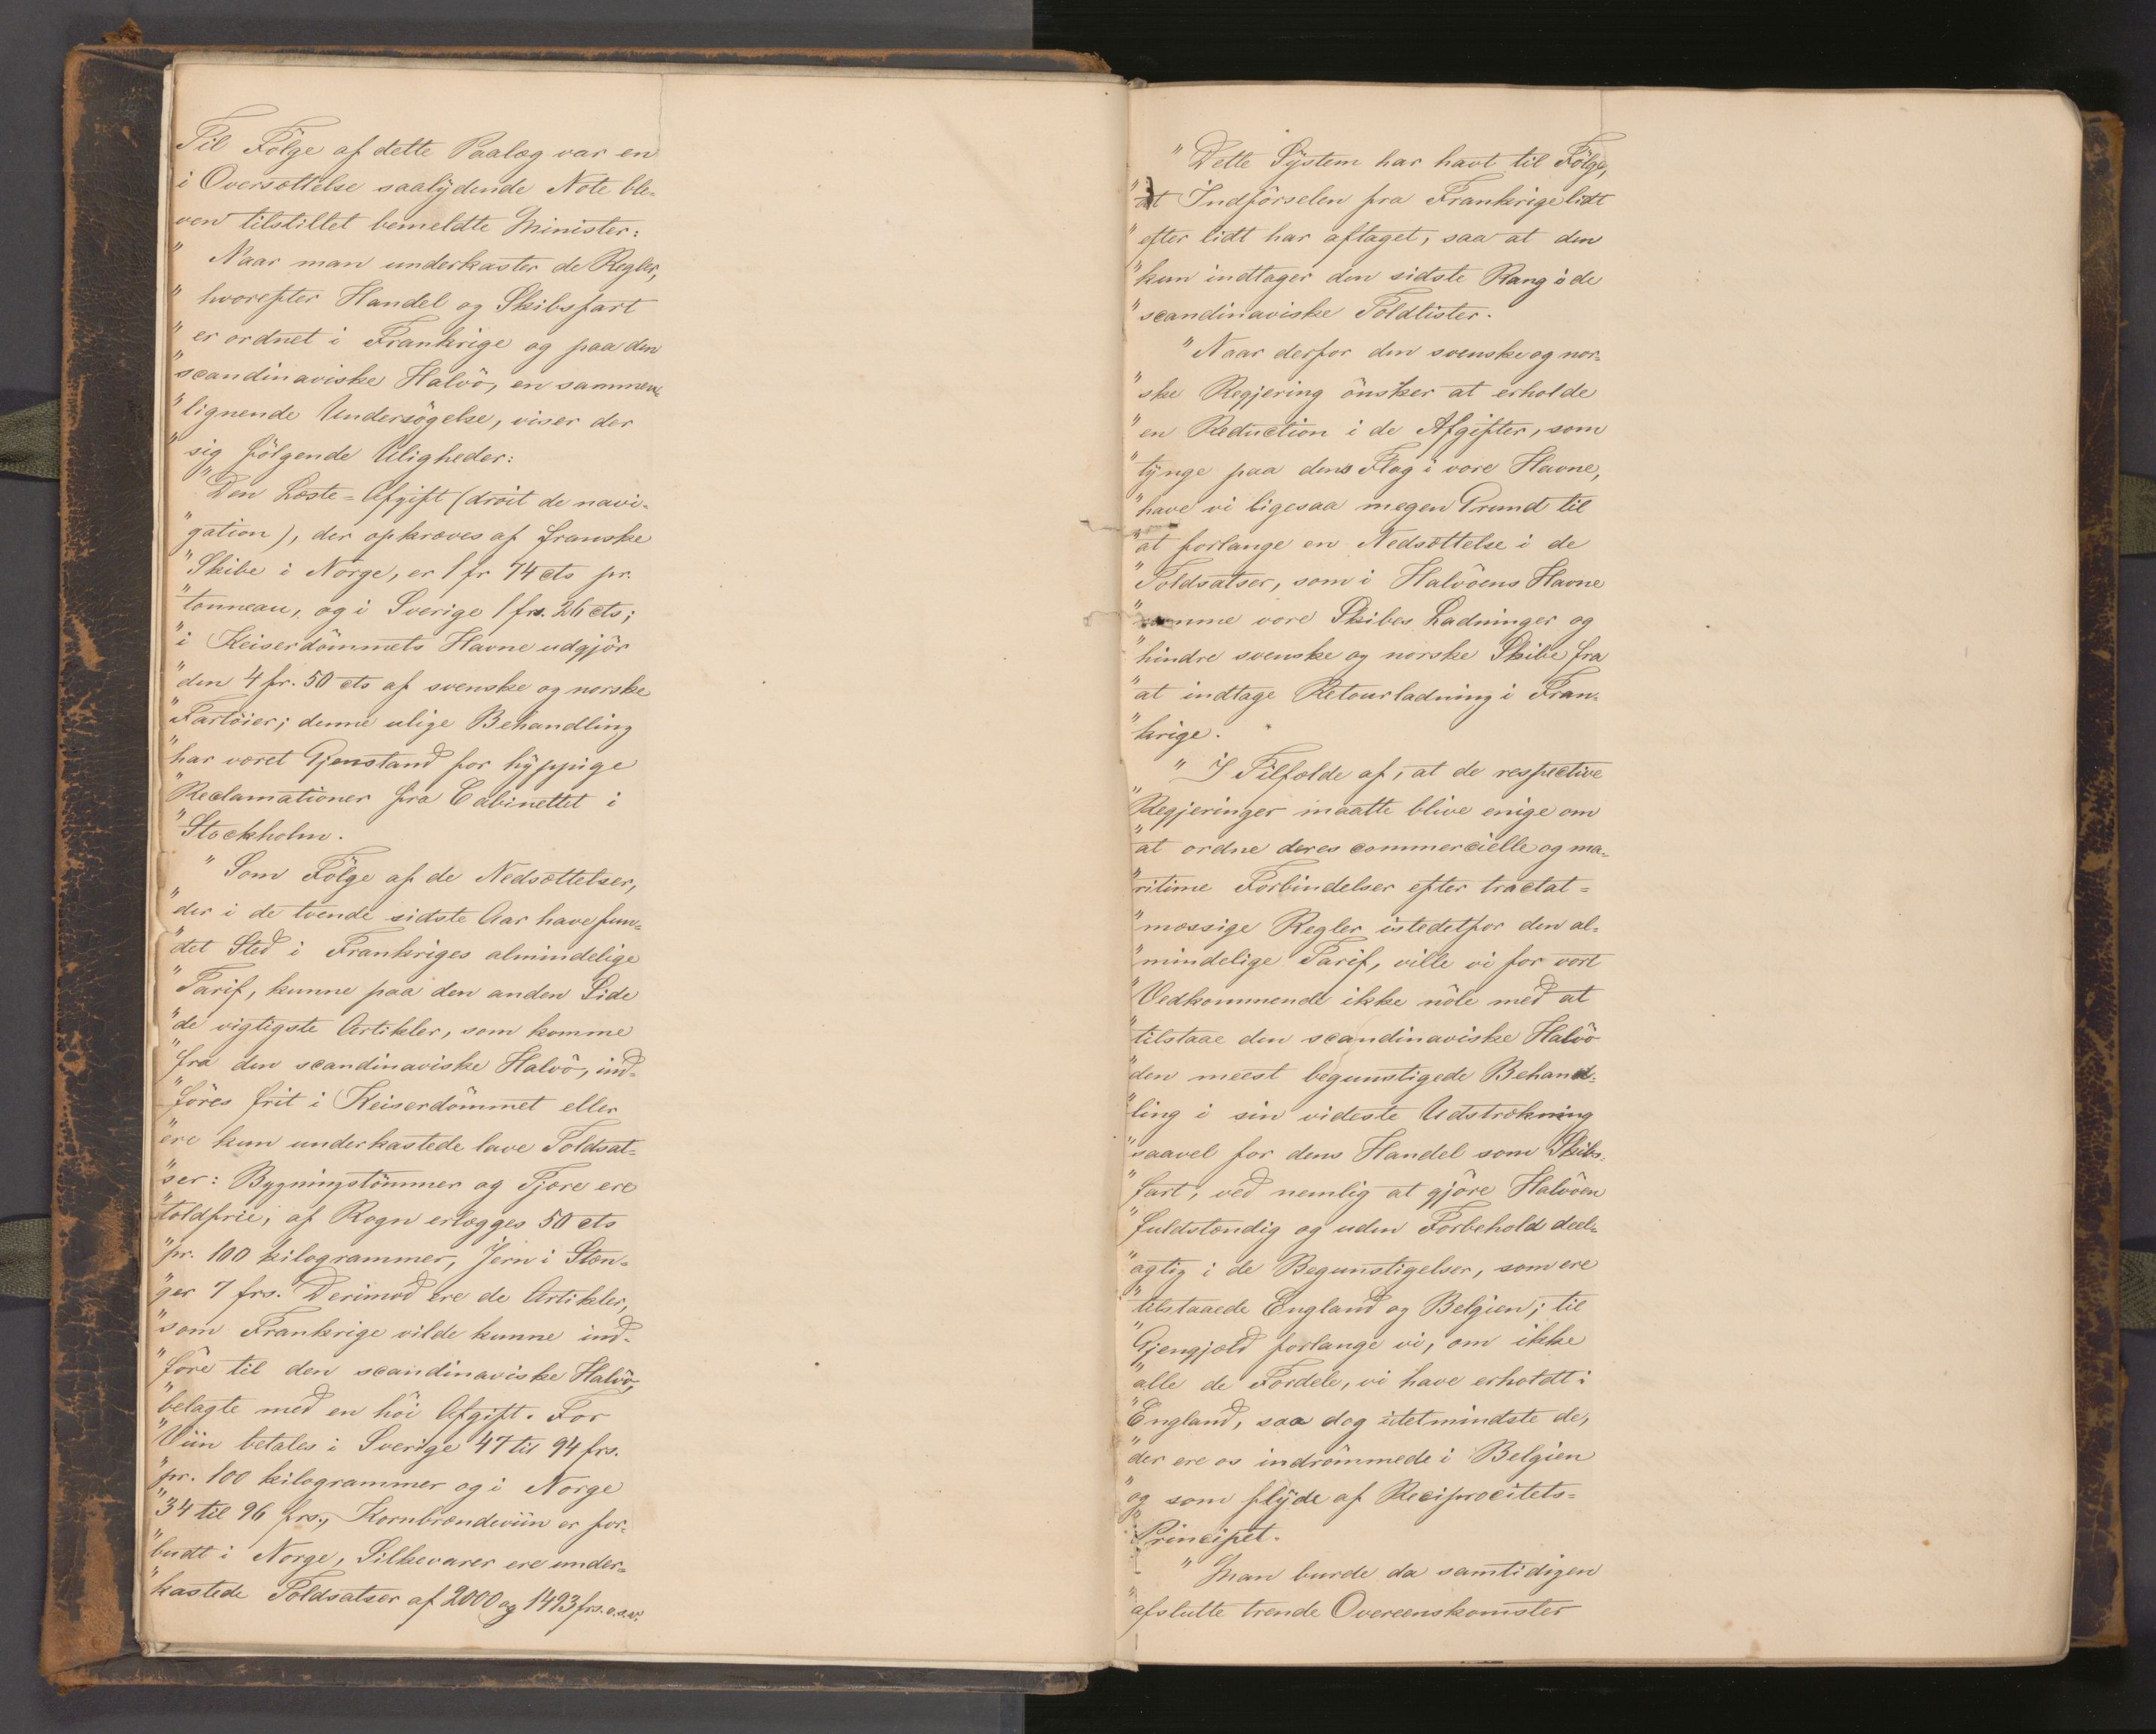 Til Fölge af dette Paalæg var en
i Oversættelse saalÿdende Note ble-
ven tilstillet bemeldte Minister:
" Naar man underkaster de Regler,
" hvorefter Handel og Skibsfart
" er ordnet i Frankrige og paa den
" scandinaviske Halvö, en sammen-
" lignende Undersögelse, viser der
" sig fölgende Uligheder:
" Den Læste-Afgift (droit de navi-
" gation), der opkræves af franske
" Skibe i Norge, er 1 fr 74 cts pr.
" tonneau, og i Sverige 1 frs. 26 cts;
" i Keiserdömmets Havne udgjör
" den 4 fr. 50 cts af svenske og norske
" Fartöier; denne ulige Behandling
" har været Gjenstand for hÿppige
" Reclamationer fra Cabinettet i
" Stockholm.
" Som Fölge af de Nedsættelser,
" der i de tvende sidste Aar have fun-
" det Sted i Frankriges almindelige
" Tarif, kunne paa den anden Side
" de vigtigste Artikler, som komme
" fra den scandinaviske Halvö, ind-
" föres frit i Keiserdömmet eller
" ere kun underkastede lave Toldsat-
" ser: Bygningstömmer og Tjære ere
" toldfrie, af Rogn erlægges 50 cts
" pr. 100 kilogrammer, Jern i Stæn-
" ger 7 frs. Derimod ere de Artikler,
" som Frankrige vilde kunne ind-
" före til den scandinaviske Halvö,
" belagte med en höi Afgift. For
" Viin betales i Sverige 47 til 94 frs.
" pr. 100 kilogrammer og i Norge
" 34 til 96 frs., Kornbrændeviin er for-
" budt i Norge, Silkevarer ere under-
" kastede Toldsatser af 2000 og 1493 frs. o.s.v.
" Dette Sÿstem har havt til Fölge,
" at Indförselen fra Frankrige lidt
" efter lidt har aftaget, saa at den
" kun indtager den sidste Rang i de
" scandinaviske Toldlister.
" Naar derfor den svenske og nor-
" ske Regjering önsker at erholde
" en Reduction i de Afgifter, som
" tÿnge paa dens Flag i vore Havne,
" have vi ligesaa megen Grund til
" at forlange en Nedsættelse i de
" Toldsatser, som i Halvöens Havne
" ramme vore Skibes Ladninger og
" hindre svenske og norske Skibe fra
" at indtage Retourladning i Fran-
" krige.
" I Tilfælde af, at de respective
" Regjeringer maatte blive enige om
" at ordne deres commercielle og ma-
" ritime Forbindelser efter tractat-
" mæssige Regler istedetfor den al-
" mindelige Tarif, ville vi for vort
" Vedkommende ikke nöle med at
" tilstaae den scandinaviske Halvö
" den meest begunstigede Behand-
" ling i sin videste Udstrækning
" saavel for dens Handel som Skibs-
" fart, ved nemlig at gjöre Halvöen
" fuldstændig og uden Forbehold deel-
" agtig i de Begunstigelser, som ere
" tilstaaede England og Belgien; til
" Gjengjæld forlange vi, om ikke
" alle de Fordele, vi have erholdt i
" England, saa dog idetmindste de,
" der ere os indrömmede i Belgien
" og som flÿde af Reciprocitets-
" Principet.
" Man burde da samtidigen
" afslutte trende Overeenskomster